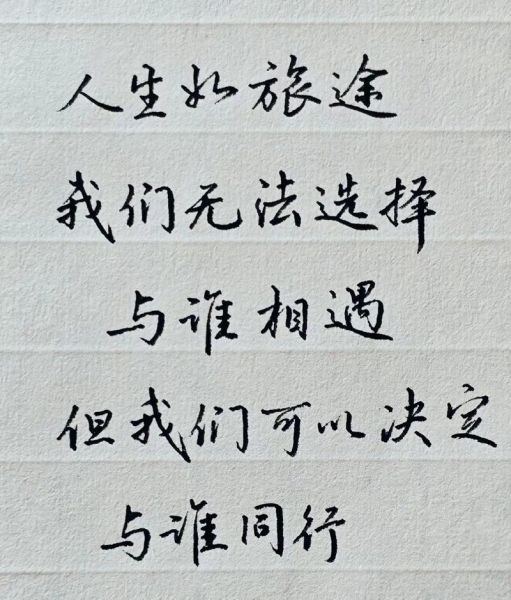 人生如旅途
我们无法选择
与谁相遇
但我们可以决定
与谁同行